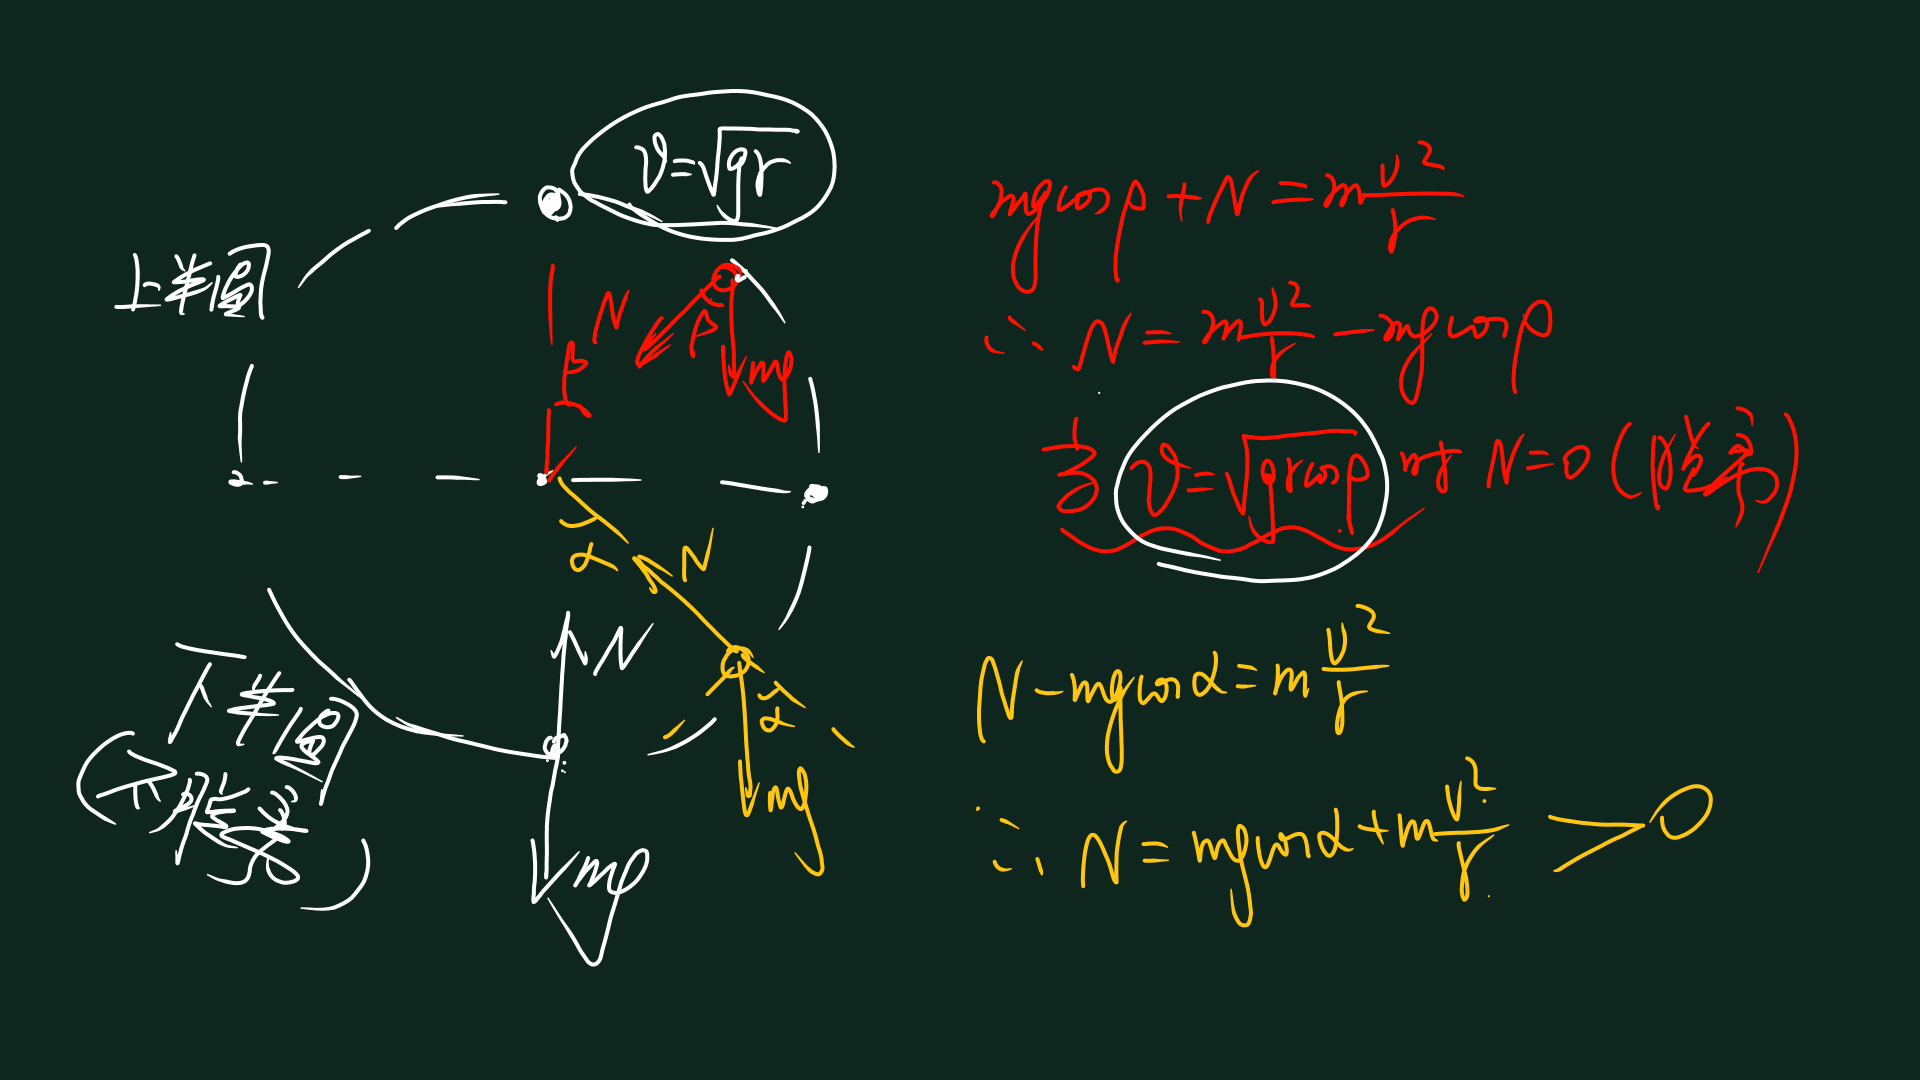 v=√gr
上半圆
N
β
β
mg
α
N
N
α
mg
下半圆
(不脱离)
mg
mgcosβ+N=mv²/r
∴N=mv²/r-mgcosβ
当v=√grcosβ时N=0(脱离)
N-mgcosα=mv²/r
∴N=mgcosα+mv²/r>0